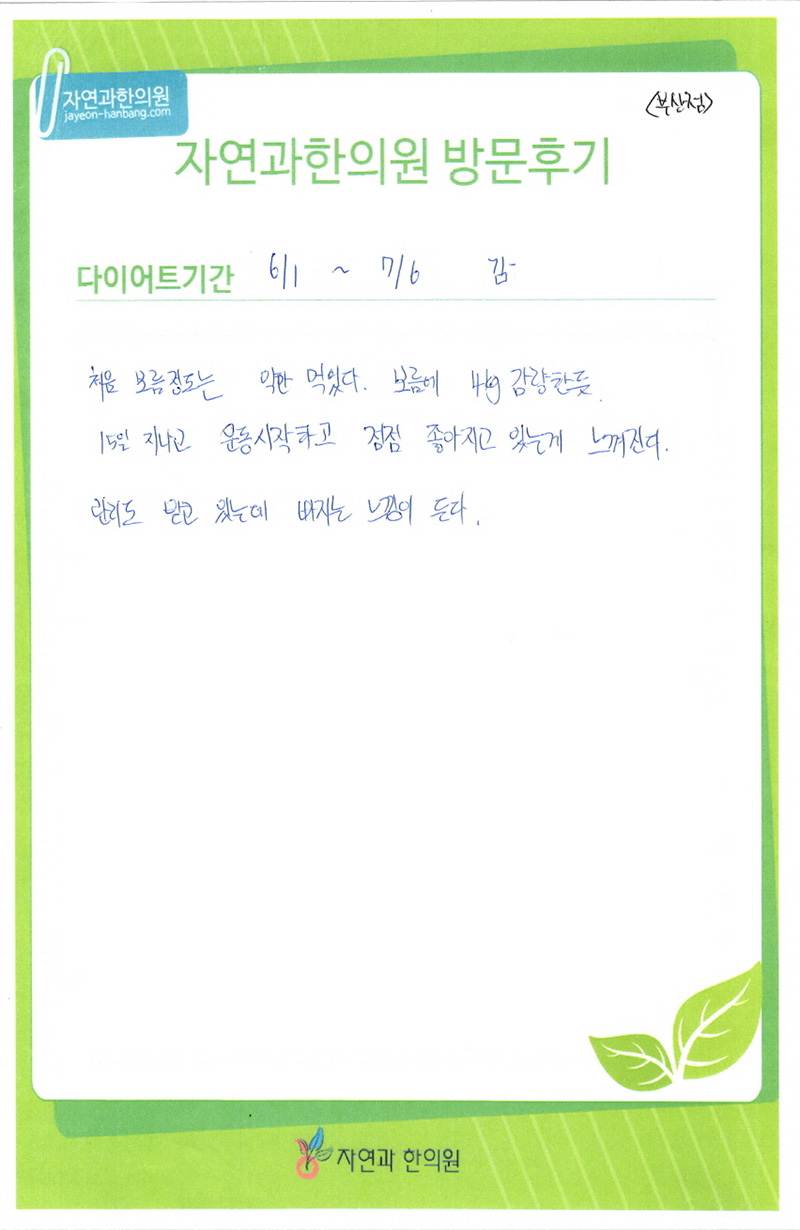 자연과한의원
jayeon-hanbang.com
<부산점>
자연과한의원 방문후기
다이어트기간 6/1 ~ 7/6 김-
처음 보름정도는 약만 먹었다. 보름에 4kg 감량한듯.
15일 지나고 운동시작하고 점점 좋아지고 있는게 느껴진다.
관리도 받고 있는데 빠지는 느낌이 든다.
자연과 한의원